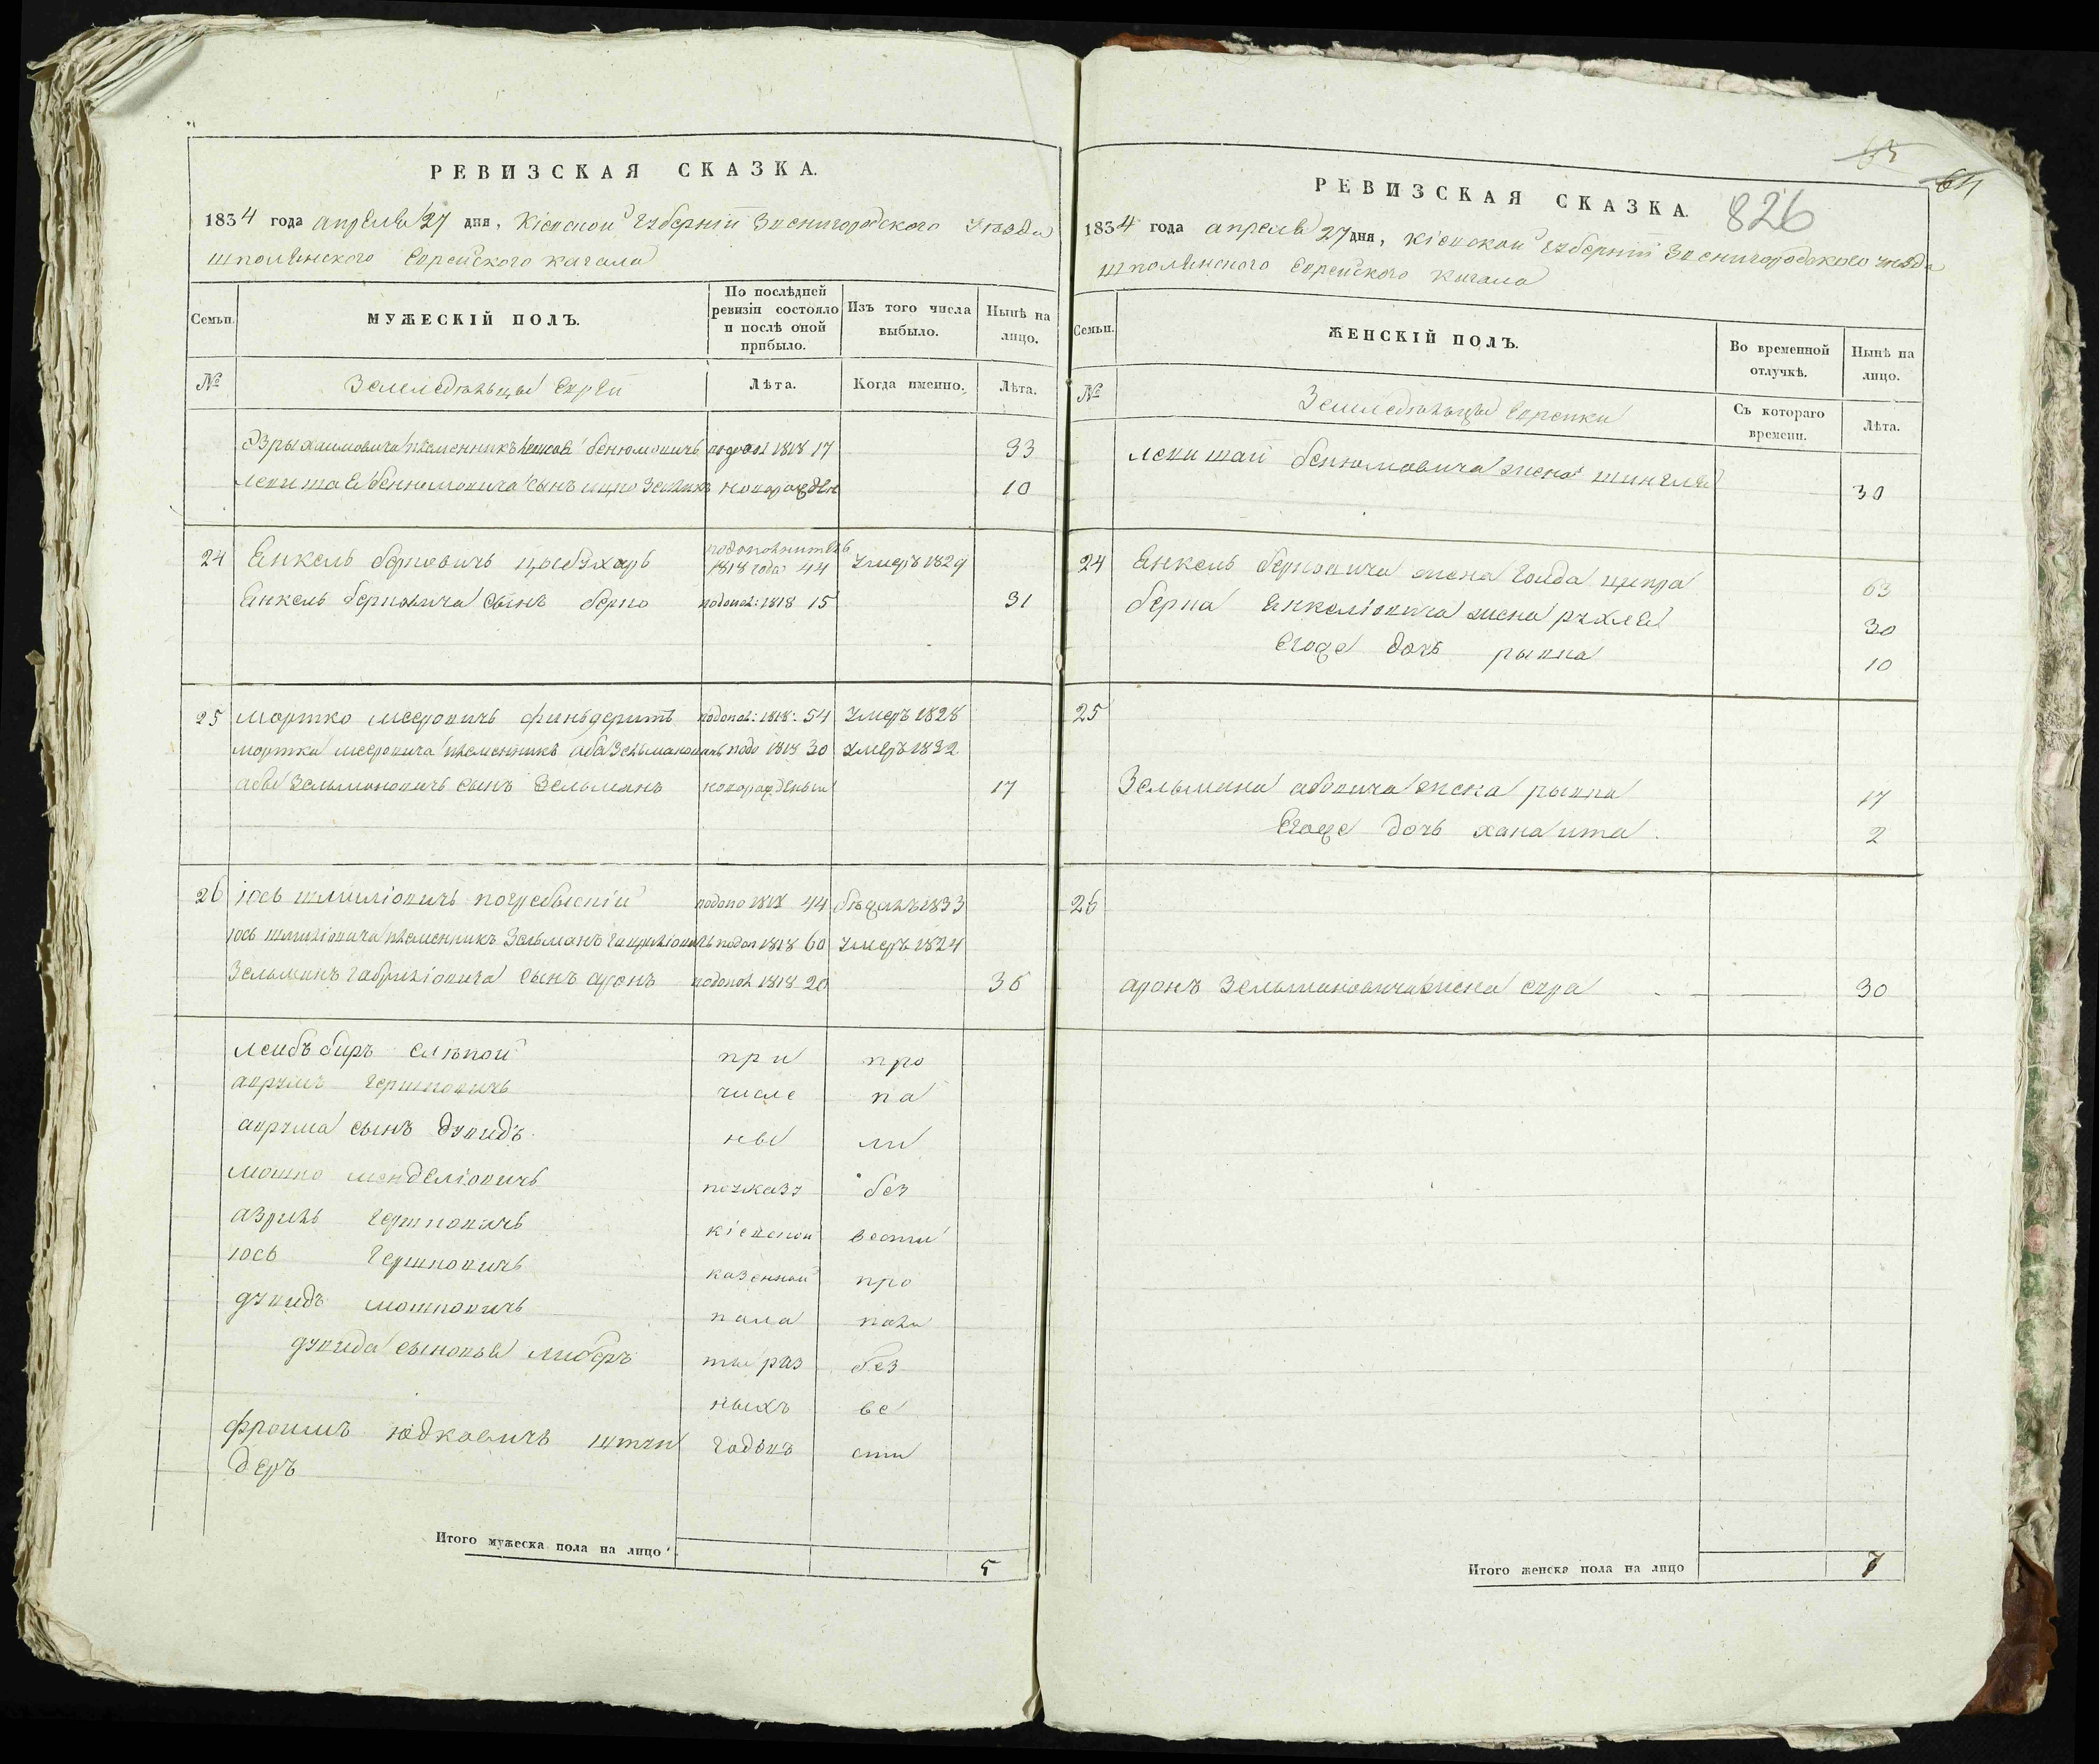 РЕВИЗСКАЯ СКАЗКА.
1834 года апреля 27 дня, Кіевской Губерніи Звенигородского Уезда
шполянского Еврейского кагала
Семьи.
МУЖЕСКІЙ ПОЛЪ.
По послѣдней ревизіи состояло и послѣ оной прибыло.
Изъ того числа выбыло.
Нынѣ на лицо.
№
Земледѣльцы Евреи
Лѣта.
Когда именно.
Лѣта.
племянникъ бенюмовичъ 1818 17 33
бенюмовича сынъ новорожден 10
24 Янкель берковичъ 1818 года 44 Умеръ 1829
Янкель берковича сынъ берко подопол: 1818 15 31
25 мортко мееровичъ подопол: 1818: 54 Умеръ 1828
мортка мееровича племянникъ аба Зельмановичъ подо 1818 30 Умеръ 1832
абы Зельмановичъ сынъ Зельманъ новорожденый 17
26 іось шмиліовичъ погребыскій подопо 1818 44 бѣжалъ 1833
іось шмиліовича племянникъ Зельманъ гавриліовичъ подоп 1818 60 Умеръ 1824
Зельманъ гавриліовича сынъ аронъ подопол 1818 20 36
лейбъ биръ слѣпой при про
аврумъ гершковичъ числе па
аврума сынъ дувидъ ны ли
мошко менделіовичъ поуказу без
азриль гершковичъ кіевской вести
іось гершковичъ казенной про
дувидъ мошковичъ пала пали
дувида сыновья либеръ ты раз без
ныхъ ве
фроимъ юдковичъ годовъ сти
деръ
Итого мужеска пола на лицо 5
64
826
РЕВИЗСКАЯ СКАЗКА.
1834 года апреля 27 дня, Кіевской Губерніи Звенигородского уезда
шполянского Еврейского Кагала
Семьи.
ЖЕНСКІЙ ПОЛЪ.
Во временной отлучкѣ.
Нынѣ на лицо.
№
Земледѣльцы Еврейки
Съ котораго времени.
Лѣта.
бенюмовича жена 30
24 Янкель берковича жена голда ципра 63
берка Янкеліовича жена рухля 30
Егоже дочь рывка 10
25
Зельмана абовича жена рывка 17
Егоже дочь хана ита 2
26
аронъ Зельмановича жена сура 30
Итого женска пола на лицо 7